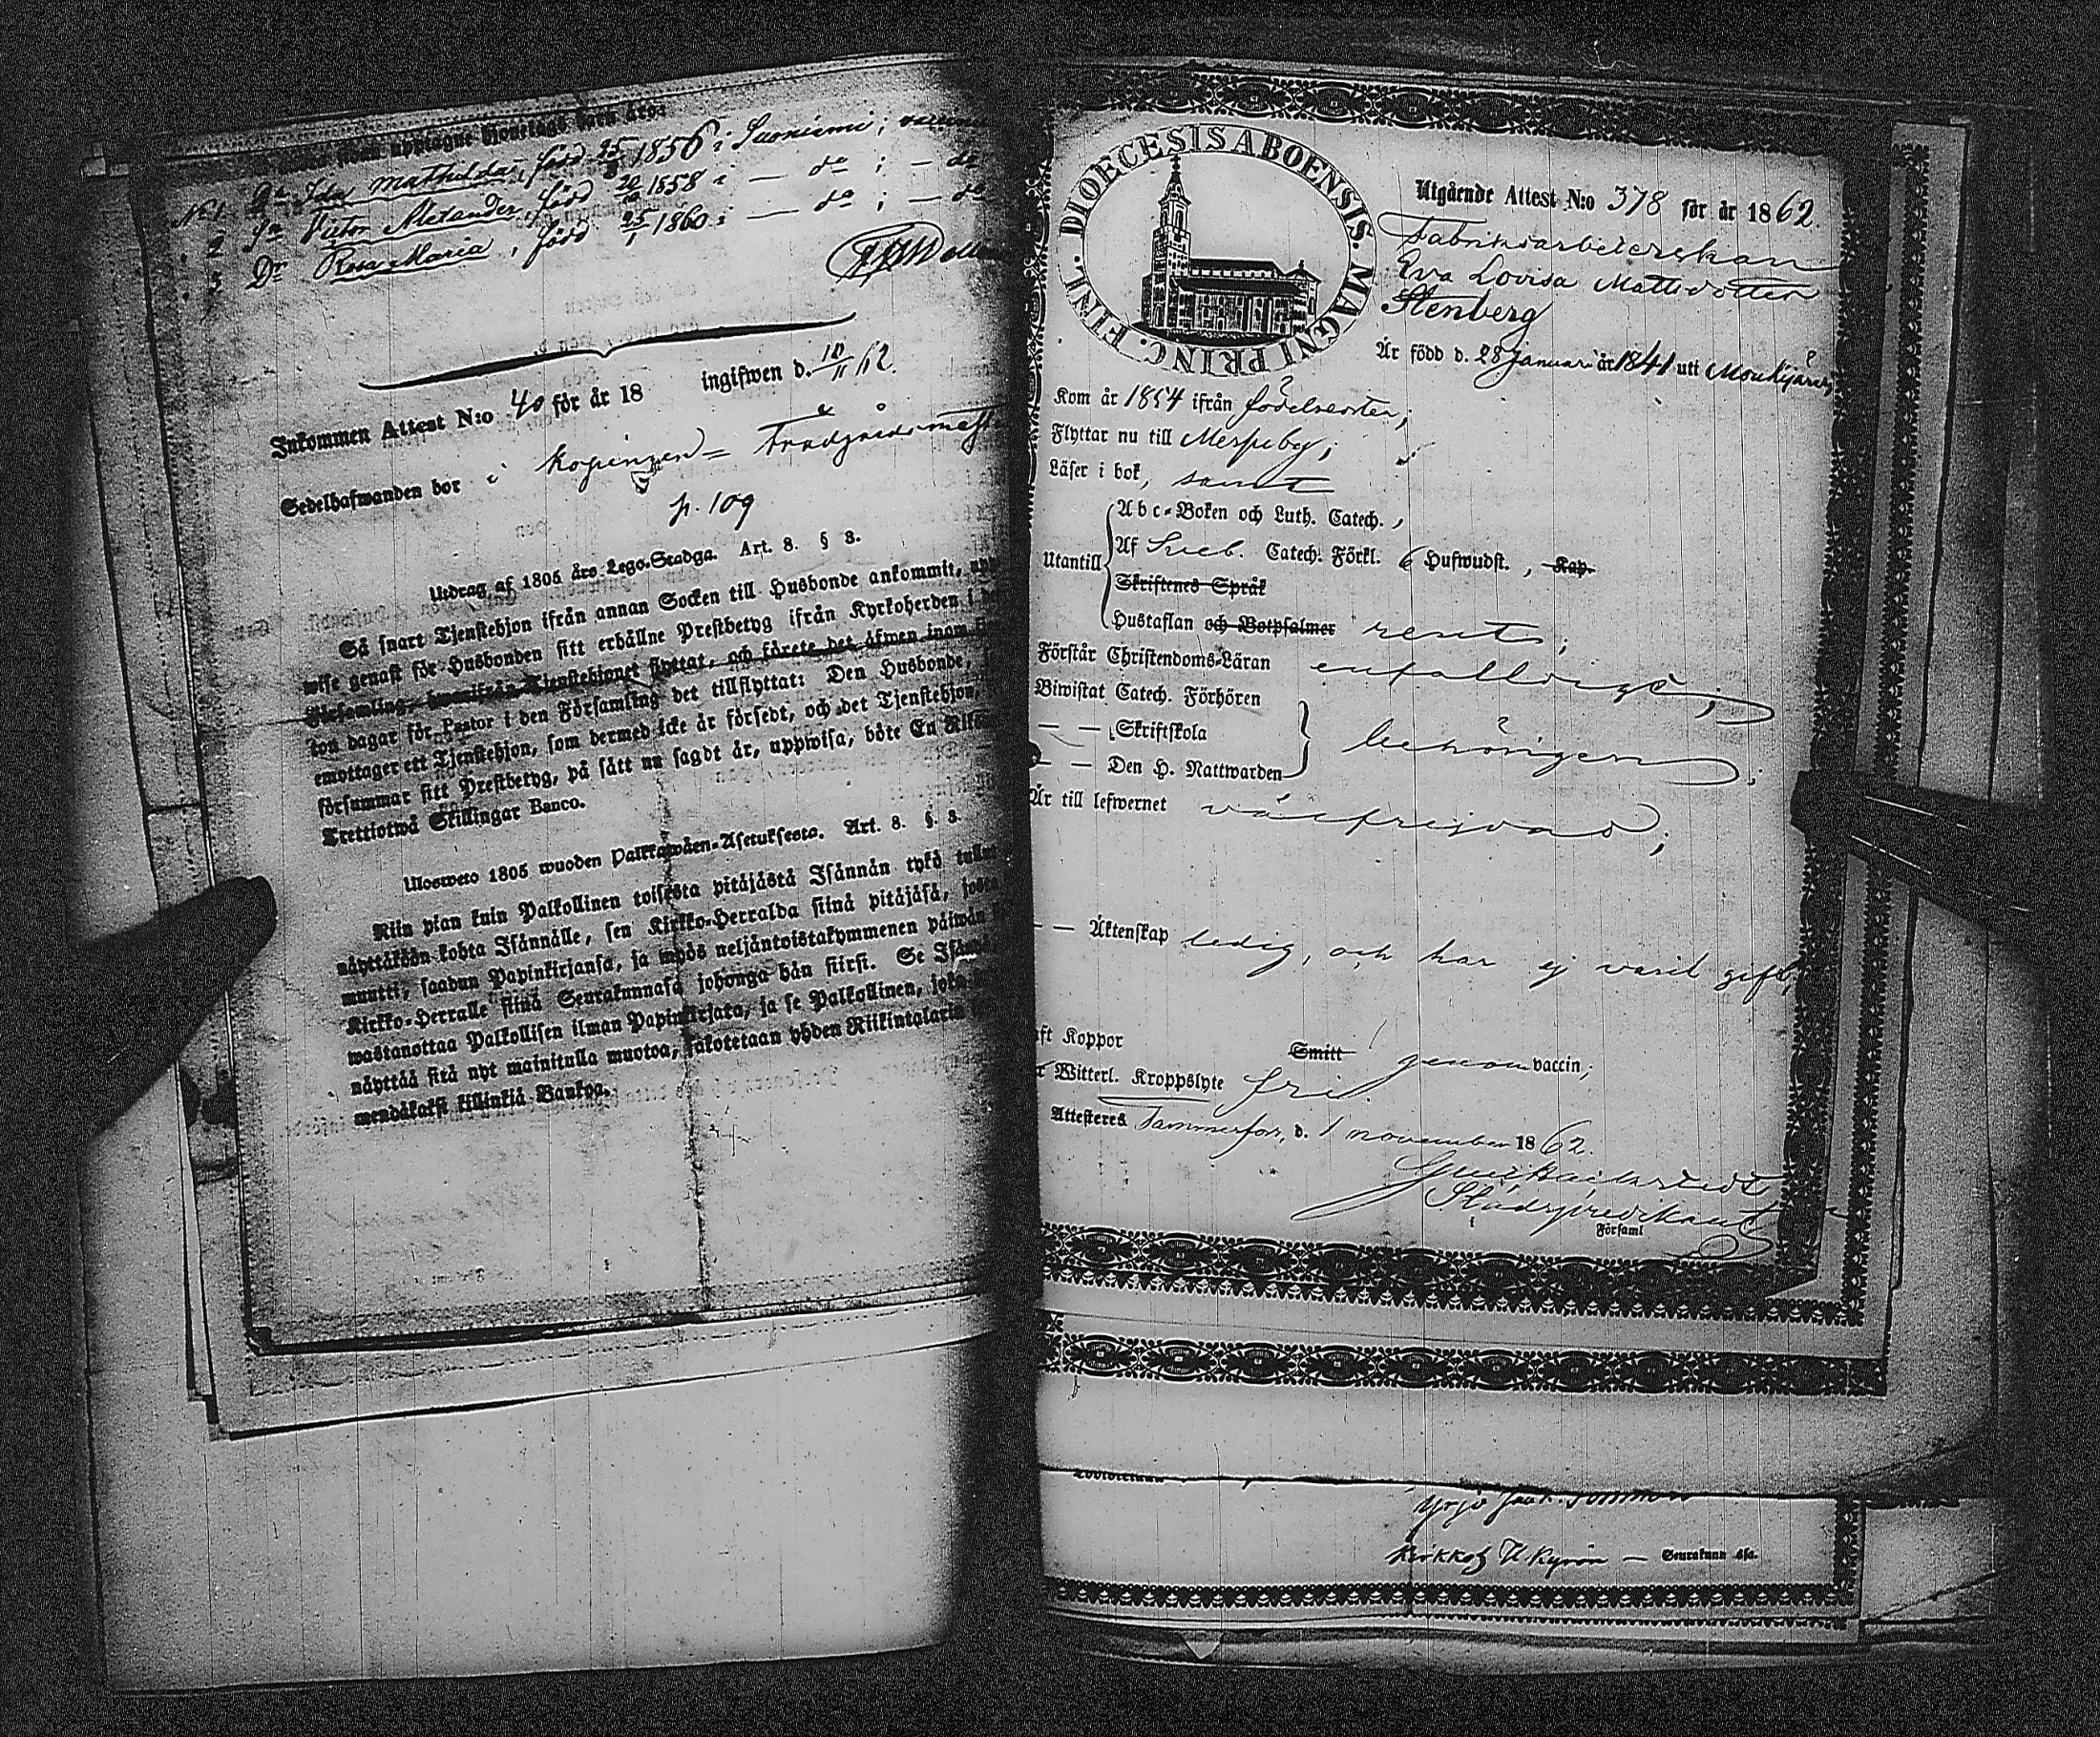 upptagne
No 1 Dr Ida Mathilda, född 25/8 1856 i Suoniemi;
" 2 Sn Victor Alexander, född 20/10 1858 i — do ; — do
" 3 Dr Rosa Maria, född 25/1 1860 i — do ; — do
Inkommen Attest N:o 40 för år 18 ingifwen d. 10/11 62.
Sedelhafwanden bor i
p. 109
Utdrag af 1805 års Lego-Stadga. Art. 8. § 3.
Så snart Tjenstehjon ifrån annan Socken till Husbonde ankommit,
wise genast för Husbonden sitt erhållne Prestbetyg ifrån Kyrkoherden i
Församling, hwarifrån Tjenstehjonet flyttat, och förete det äfwen inom
ton dagar för Pastor i den Församling det tillflyttat: Den Husbonde,
emottager ett Tjenstehjon, som dermed icke är försedt, och det Tjenstehjon,
försummar sitt Prestbetyg, på sätt nu sagdt är, uppwisa, böte En
Trettiotwå Skillingar Banco.
Ulosweto 1805 wuoden Palkkawäen-Asetuksesta. Art. 8. §. 3.
Niin pian kuin Palkollinen toisesta pitäjästä Isännän tykö
näyttäkään kohta Isännälle, sen Kirkko-Herralda siinä pitäjäsä, josta
muutti, saadun Papinkirjansa, ja myös neljäntoistakymmenen päiwän
Kirkko-Herralle siinä Seurakunnasa johonga hän siirsi. Se
wastanottaa Palkollisen ilman Papinkirjata, ja se Palkollinen,
näyttää sitä nyt mainitulla muotoa, sakotetaan yhden Riikintalarin
mendäkaksi killinkiä Bankoa.
DIOECESIS ABOENSIS. MAGNI PRINC. FINL.
Utgående Attest N:o 378 för år 1862.
Fabriksarbeterskan
Eva Lovisa Mattsdotter
Stenberg
Är född d. 28 Januari år 1841 uti Mouhijärvi
Kom år 1854 ifrån födelseorten;
Flyttar nu till Messuby;
Läser i bok, samt
Utantill
Abc-Boken och Luth. Catech.,
Af Sveb. Catech. Förkl. 6 Hufwudst., Kap.
Skriftenes Språk
Hustaflan och Botpsalmer rent;
Förstår Christendoms-Läran enfaldigt;
Biwistat Catech. Förhören
— — Skriftskola behörigen;
— — Den H. Nattwarden
Är till lefwernet välfrejdad;
— — Äktenskap ledig, och har ej varit gift;
ft Koppor Smitt genom vaccin;
Witterl. Kroppslyte fri.
Attesteras Tammerfors, d. 1 november 1862.
Stadspredikant
i Församl
Kirkkoh
Seurakunn asa.